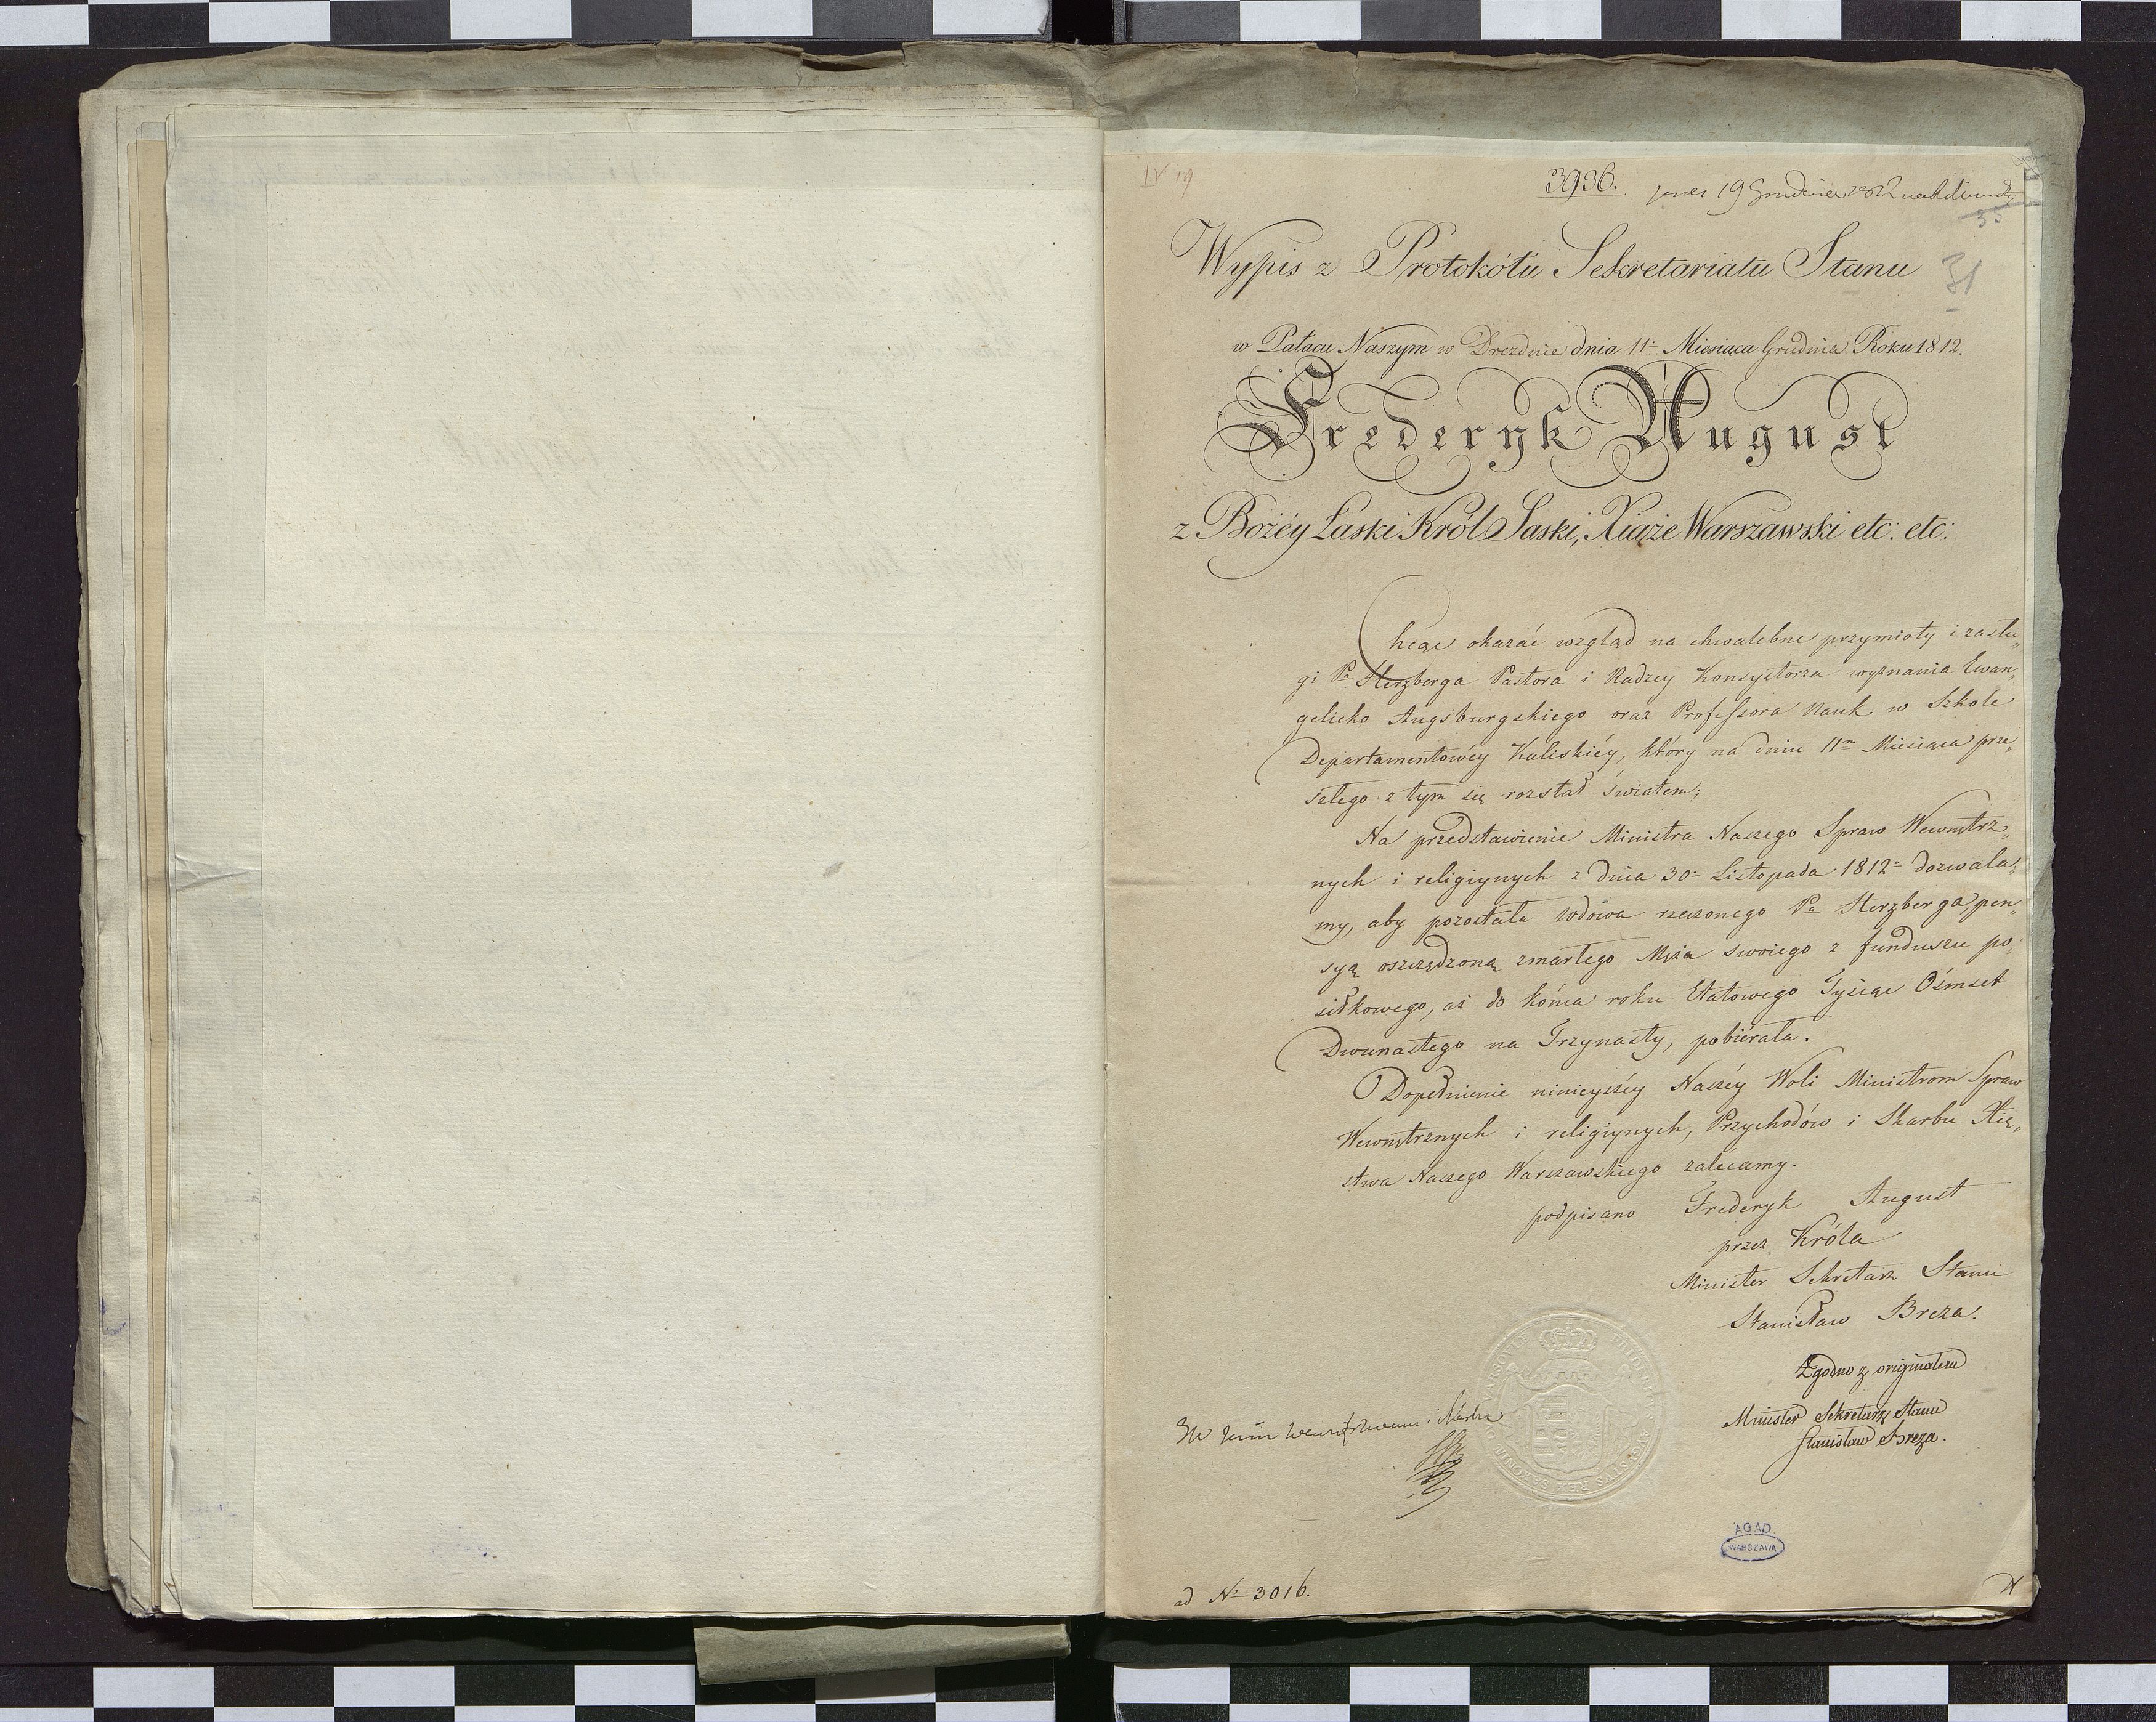 IV 19
3936.
19 Grudnia
35
31
Wypis z Protokółu Sekretariatu Stanu
w Pałacu Naszym w Dreznie dnia 11º Miesiąca Grudnia Roku 1812.
Frederyk August
z Bożéy Łaski Król Saski, Xiąże Warszawski etc: etc:
Chcąc okazać wzgląd na chwalebne przymioty i zasłu„
gi Pª Herzberga Pastora i Radzcy Konsystorza wyznania Ewan„
gelicko Augsburgskiego oraz Professora Nauk w Szkole
Departamentowéy Kaliskiéy, który na dniu 11m Miesiąca prze„
szłego z tym się rozstał światem;
Na przedstawienie Ministra Naszego Spraw Wewnętrz„
nych i religiynych z dnia 30º Listopada 1812º dozwala„
my, aby pozostała wdowa rzeczonego Pª Herzberga, pen„
syą oszczędzoną zmarłego Męża swoiego z funduszu po„
siłkowego, aż do końca roku Etatowego Tysiąc Ośmset
Dwunastego na Trzynasty, pobiérała.
Dopełnienie ninieyszéy Naszéy Woli Ministrom Spraw
Wewnętrznych i religiynych, Przychodów i Skarbu Xię„
stwa Naszego Warszawskiego zalécamy.
podpisano Frederyk August
przez Króla
Minister Sekretarz Stanu
Stanisław Breza.
Zgodno z originałem
Minister Sekretarz Stanu
Stanisław Breza.
i Skarbu
AGAD
WARSZAWA
ad Nº 3016.